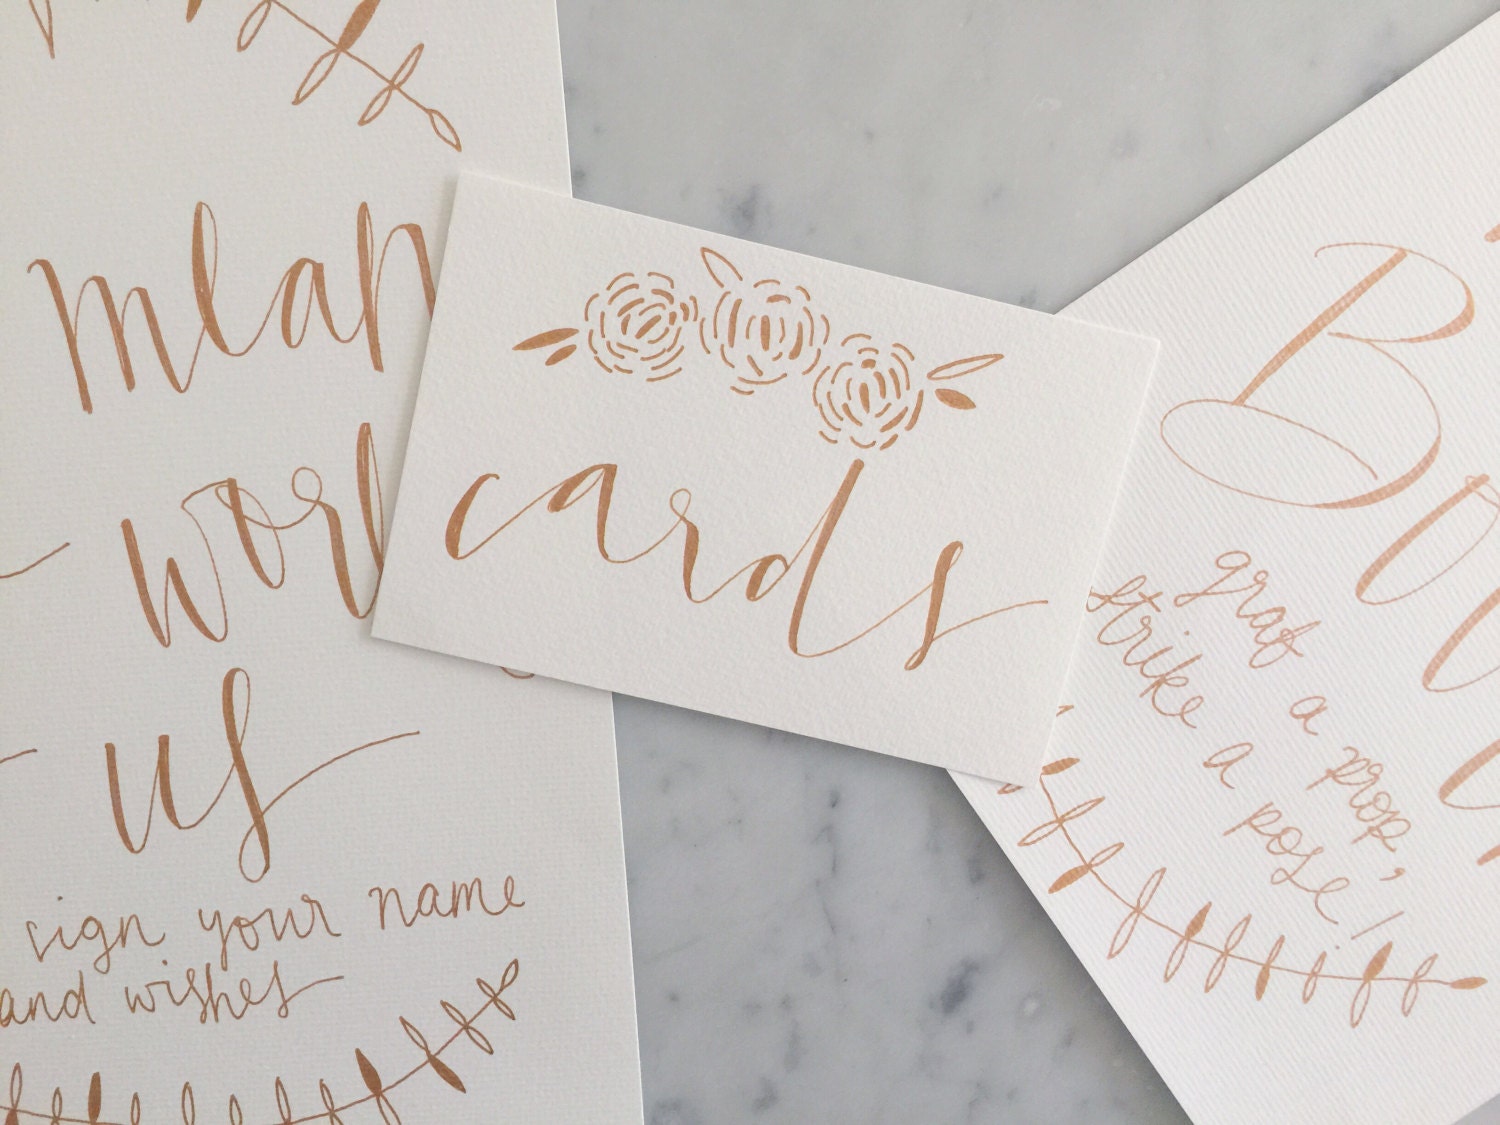 mean
world
us
sign your name
and wishes
cards
grab a prop,
strike a pose!